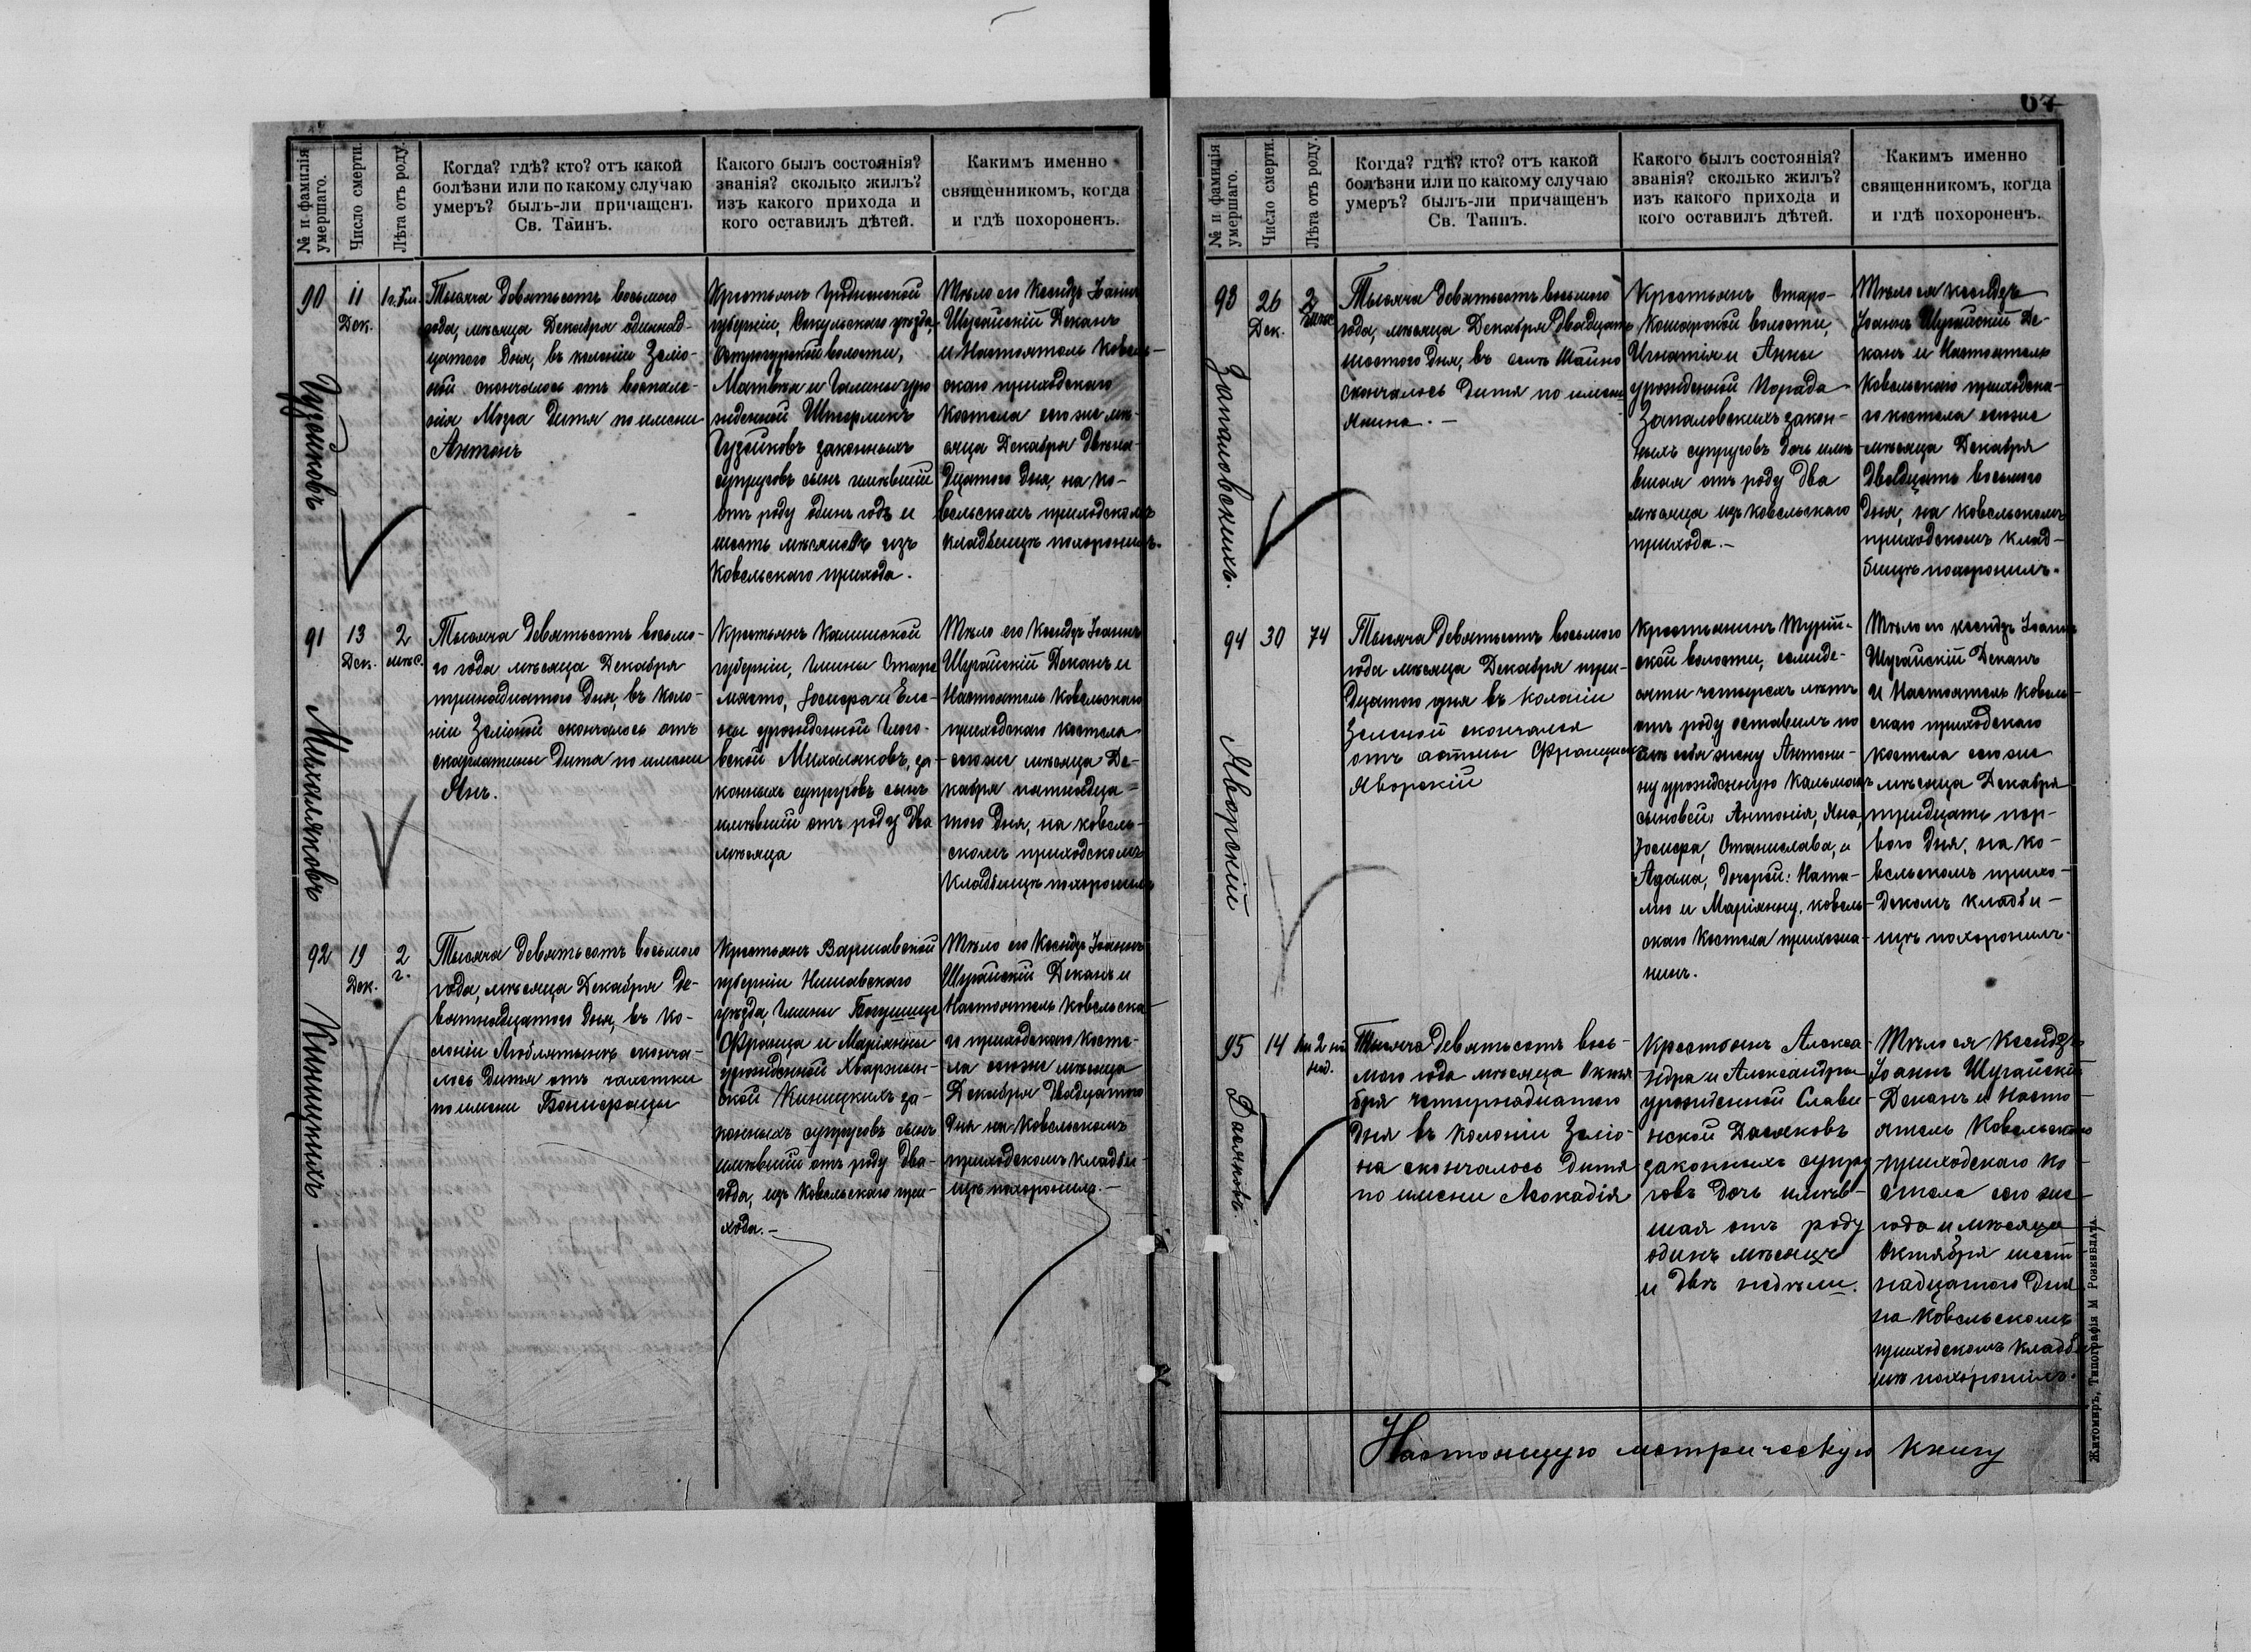 № и фамилія
умершаго.
Число смерти.
Лѣта отъ роду.
Когда? гдѣ? кто? отъ какой
болѣзни или по какому случаю
умеръ? былъ-ли причащенъ
Св. Таинъ.
Какого былъ состоянія?
званія? сколько жилъ?
изъ какого прихода и
кого оставилъ дѣтей.
Какимъ именно
священникомъ, когда
и гдѣ похороненъ.
90
Гузейковъ
11
Дек.
Тысяча девятьсотъ восьмого
года, мѣсяца Декабря одиннад-
цатаго дня, въ колоніи Зеліо-
ной скончалось отъ воспале-
нія Мозга дитя по имени
Антонъ
Крестьянъ Гродненской
губерніи, Сокульскаго уѣзда,
волости,
Матвѣя и Галины уро
жденной
Гузейковъ законныхъ
супруговъ сынъ имѣвшій
отъ роду одинъ годъ и
шесть мѣсяцовъ изъ
Ковельскаго прихода.
Тѣло его Ксендзъ Іоаннъ
Шугайскій Деканъ
и Настоятель Ковель-
скаго приходскаго
костела сего же мѣ-
сяца Декабря двѣна-
дцатаго дня, на ко-
вельскомъ приходскомъ
кладбищѣ похоронилъ.
91
Михаляковъ
13
Дек.
2
мѣс.
Тысяча девятьсотъ восьмо-
го года мѣсяца Декабря
тринадцатаго дня, въ коло-
ніи Зеліоной скончалось отъ
скарлатины дитя по имени
Янъ.
Крестьянъ Калишской
губерніи, Гмины Старе
място, Іосифа и Еле-
ны урожденной
Михаляковъ, за-
конныхъ супруговъ сынъ
имѣвшій отъ роду два
мѣсяца
Тѣло его Ксендзъ Іоаннъ
Шугайскій Деканъ и
Настоятель Ковельскаго
приходскаго костела
сего же мѣсяца Де-
кабря пятнадца-
таго дня, на ковель-
скомъ приходскомъ
кладбищѣ похоронилъ
92
Киницкихъ.
19
Дек.
2
г.
Тысяча девятьсотъ восьмого
года, мѣсяца Декабря де-
вятнадцатаго дня, въ ко-
лоніи Люблятынъ сконча-
лось дитя отъ чахотки
по имени Бонифацы
Крестьянъ Варшавской
губерніи Нешавскаго
уѣзда, Гмины
Франца и Маріанны
урожденной
Киницкихъ за-
конныхъ супруговъ сынъ
имѣвшій отъ роду два
года, изъ Ковельскаго при-
хода.-
Тѣло его Ксендзъ Іоаннъ
Шугайскій Деканъ и
Настоятель Ковельска-
го приходскаго косте-
ла сего же мѣсяца
Декабря двадцатаго
дня на Ковельскомъ
приходскомъ кладби-
щѣ похоронилъ.-
67
№ и фамилія
умершаго.
Число смерти.
Лѣта отъ роду.
Когда? гдѣ? кто? отъ какой
болѣзни или по какому случаю
умеръ? былъ-ли причащенъ
Св. Таинъ.
Какого былъ состоянія?
званія? сколько жилъ?
изъ какого прихода и
кого оставилъ дѣтей.
Какимъ именно
священникомъ, когда
и гдѣ похороненъ.
93
Запаловскихъ.
26
Дек.
2
Тысяча девятьсотъ восьмого
года, мѣсяца Декабря двадцать
шестого дня, въ селѣ
скончалось дитя по имени
Янина.-
Крестьянъ Старо-
Кошарской волости,
Игнатія и Анны
урожденной Порада
Запаловскихъ закон-
ныхъ супруговъ дочь имѣ
вшая отъ роду два
мѣсяца изъ ковельскаго
прихода.-
Тѣло ея ксендзъ
Іоаннъ Шугайскій Де-
канъ и Настоятель
Ковельскаго приходска-
го костела сего же
мѣсяца Декабря
двадцать восьмого
дня, на ковельскомъ
приходскомъ клад-
бищѣ похоронилъ.
94
Яворскій
30
74
Тысяча девятьсотъ восьмого
года мѣсяца Декабря три-
дцатаго дня въ колоніи
Зеленой скончался
отъ астмы Францишекъ
Яворскій
Крестьянинъ Турій-
ской волости, семиде-
сяти четырехъ лѣтъ
отъ роду оставилъ по
слѣ себя жену Антони-
ну урожденную
сыновей: Антонія, Яна,
Іосифа, Станислава, и
Адама, дочерей: Ната-
лію и Маріанну, ковель-
скаго костела прихожа-
нинъ.
Тѣло его ксендзъ Іоаннъ
Шугайскій Деканъ
и Настоятель ковель-
скаго приходскаго
костела сего же
мѣсяца Декабря
тридцать пер-
вого дня, на ко-
вельскомъ прихо-
дскомъ кладби-
щѣ похоронилъ.
95
Дасяковъ.
14
Тысяча девятьсотъ вось-
мого года мѣсяца Октя
бря четырнадцатаго
дня въ колоніи Зеліо-
на скончалось дитя
по имени Леокадія
Крестьянъ Алекса-
ндра и Александры
урожденной Слави-
нской Дасяковъ
законныхъ супру
говъ дочь имѣв-
шая отъ роду
одинъ мѣсяцъ
и двѣ недѣли.
Тѣло ея Ксендзъ
Іоаннъ Шугайскій
Деканъ и Насто-
ятель Ковельскаго
приходскаго ко-
стела сего же
года и мѣсяца
Октября шест
надцатаго дня
на Ковельскомъ
приходскомъ кладби
щѣ похоронилъ.
Настоящую метрическую книгу
Житомиръ, Типографія М Розенблата.